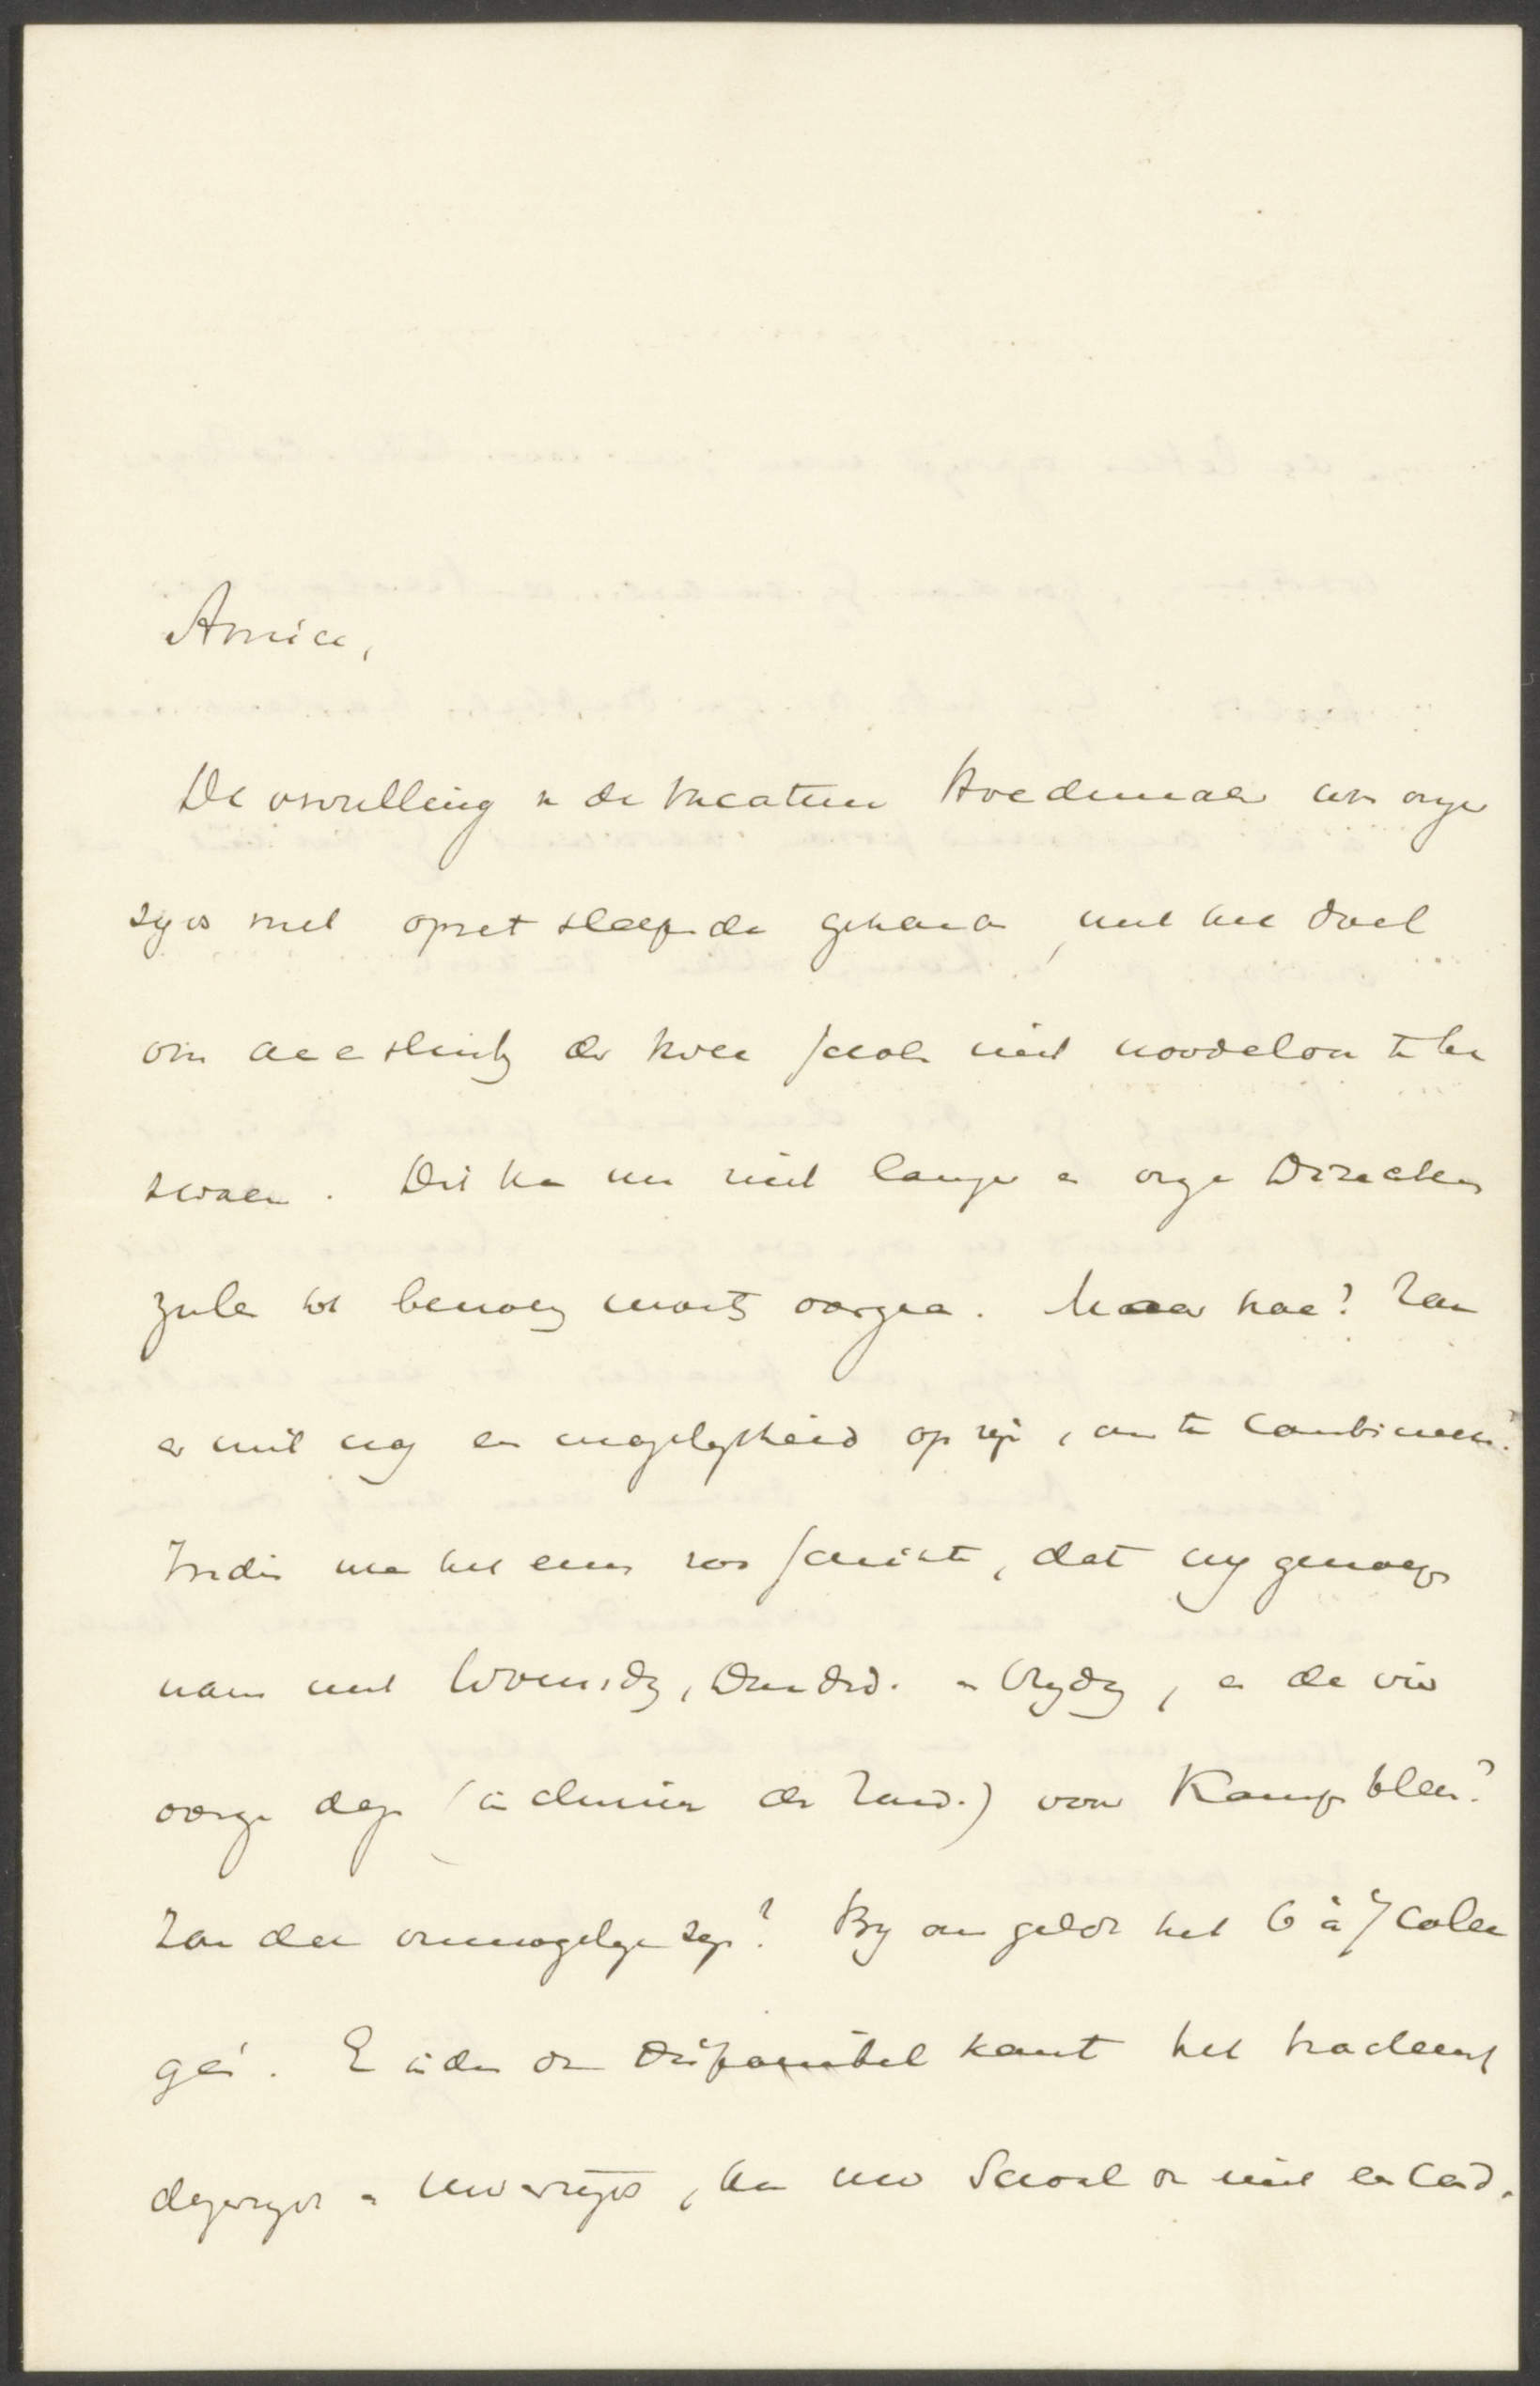 Amice,
De vervulling v. de vacature Hoedemaker van onze
zijde is met opzet sleepende gehouden, met het doel
om aaneensluiting der twee scholen niet noodeloos te be
zwaren. Dit kan nu niet langer en onze Directeuren
zullen tot benoeming moeten overgaan. Maar hoe? Zou
er niet nog een mogelijkheid op zijn, om te combineeren?
Indien men het eens zoo schikte, dat wij genoegen
namen met Woensdag, Donderd. en Vrijdag, en de vier
overige dagen (inclusies der Zond.) voor Kampen bleven?
Zou dat onmogelijk zijn? Bij ons geldt het 6 à 7 colle
gés. Indien de disponibel komt het tractement
Uwerzijds, kan uw School er niet bij